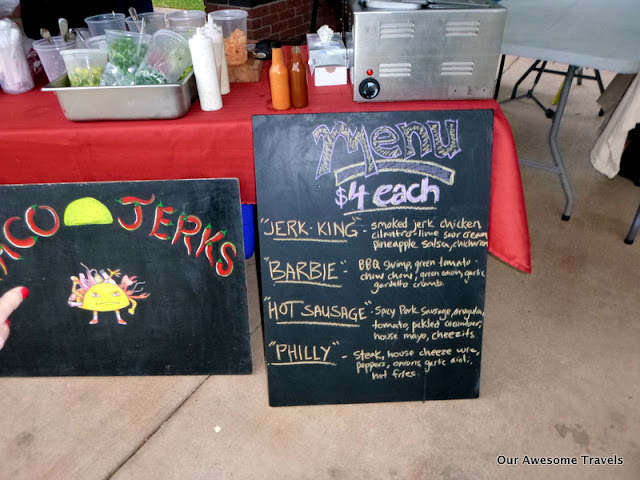 ACO JERKS
Menu
$4 each
"JERK-KING" - smoked jerk chicken
cilantro-lime sour cream
pineapple salsa, chichurron
"BARBIE" - BBQ shrimp, green tomato
chow chow, green onion, garlic
gardetto crumb.
"HOT SAUSAGE" - spicy pork sausage, arugula,
tomato, pickled cucumber,
house mayo, cheezits.
"PHILLY" - steak, house cheeze wiz,
peppers, onions, garlic aioli,
hot fries.
Our Awesome Travels